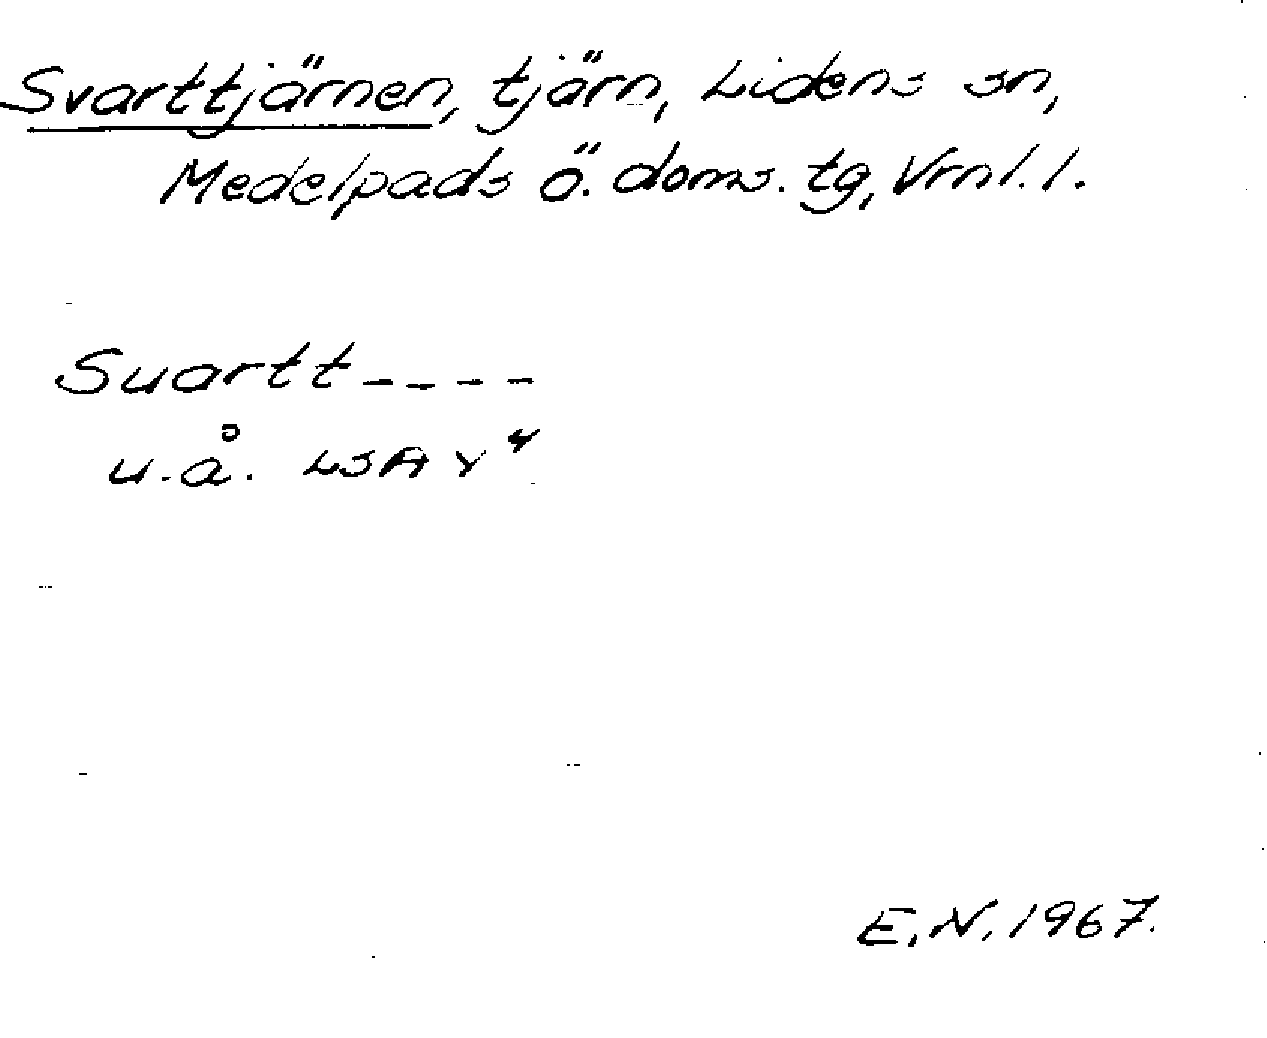 Svarttjärnen, tjärn, Lidens sn,
Medelpads ö. doms. tg, Vrnl. l.
Suartt----
u.å. LSA Y⁴
E.N. 1967.